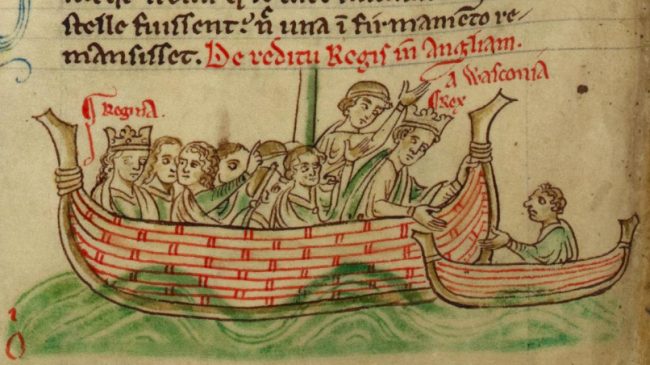 stelle fuissent: nͨ una ĩ firmamẽto re-
mansisset. De reditu Regis in Angliam.
a Wasconia
Regina.
Rex